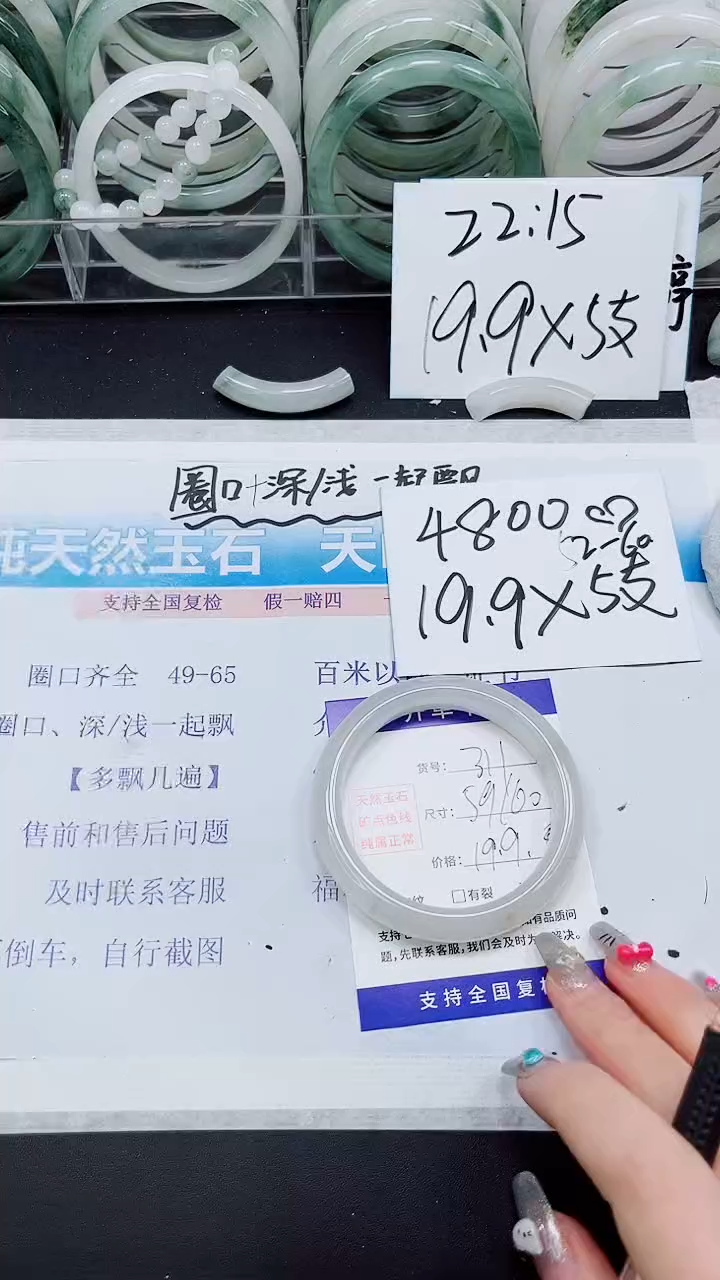 22:15
19.9×5支
停
圈口+深/浅一起飘
4800
52-60
19.9×5支
纯天然玉石 天
支持全国复检 假一赔四
圈口齐全 49-65
百米以
圈口、深/浅一起飘
【多飘几遍】
售前和售后问题
及时联系客服
福
倒车，自行截图
开单卡
货号：311
天然玉石
矿点色线
纯属正常
尺寸：59/60
价格：19.9
纹 □有裂
支持
如有品质问
题，先联系客服，我们会及时为 解决。
支持全国复检